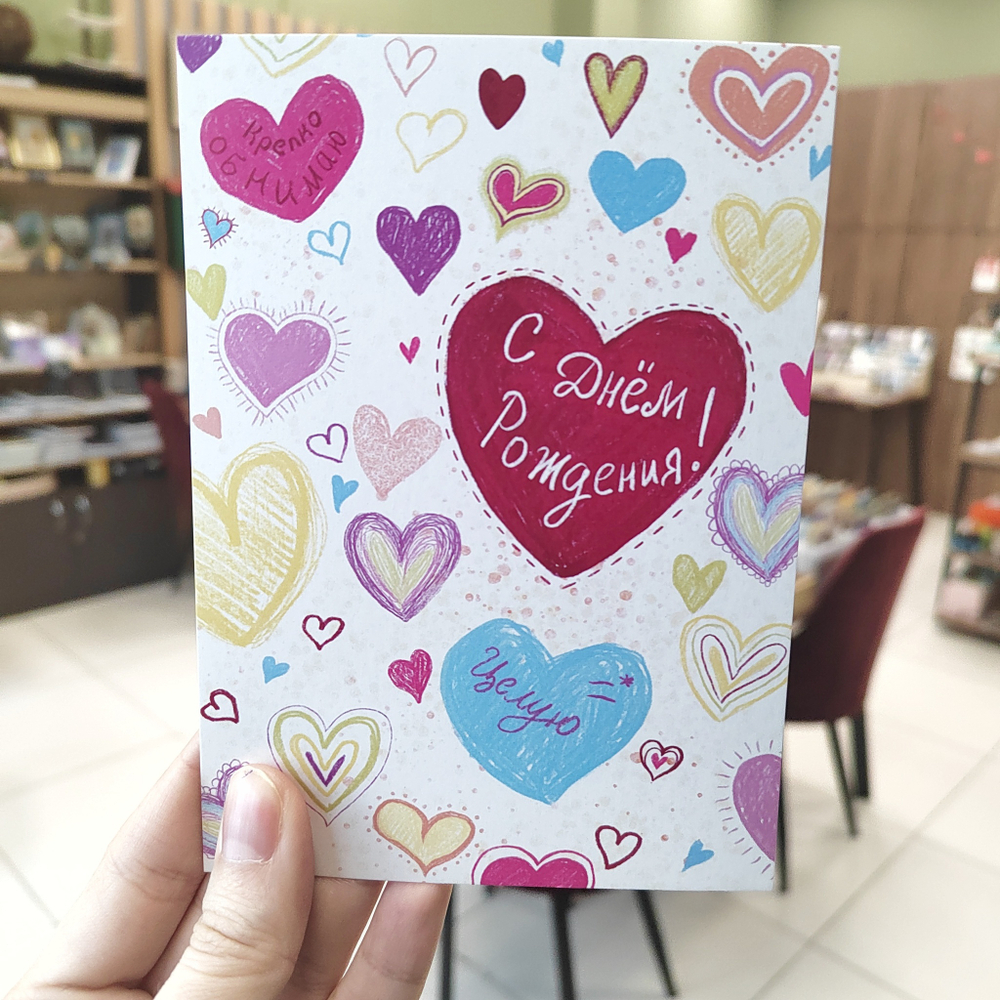 Крепко
обнимаю
С
Днём
Рождения!
Целую =*